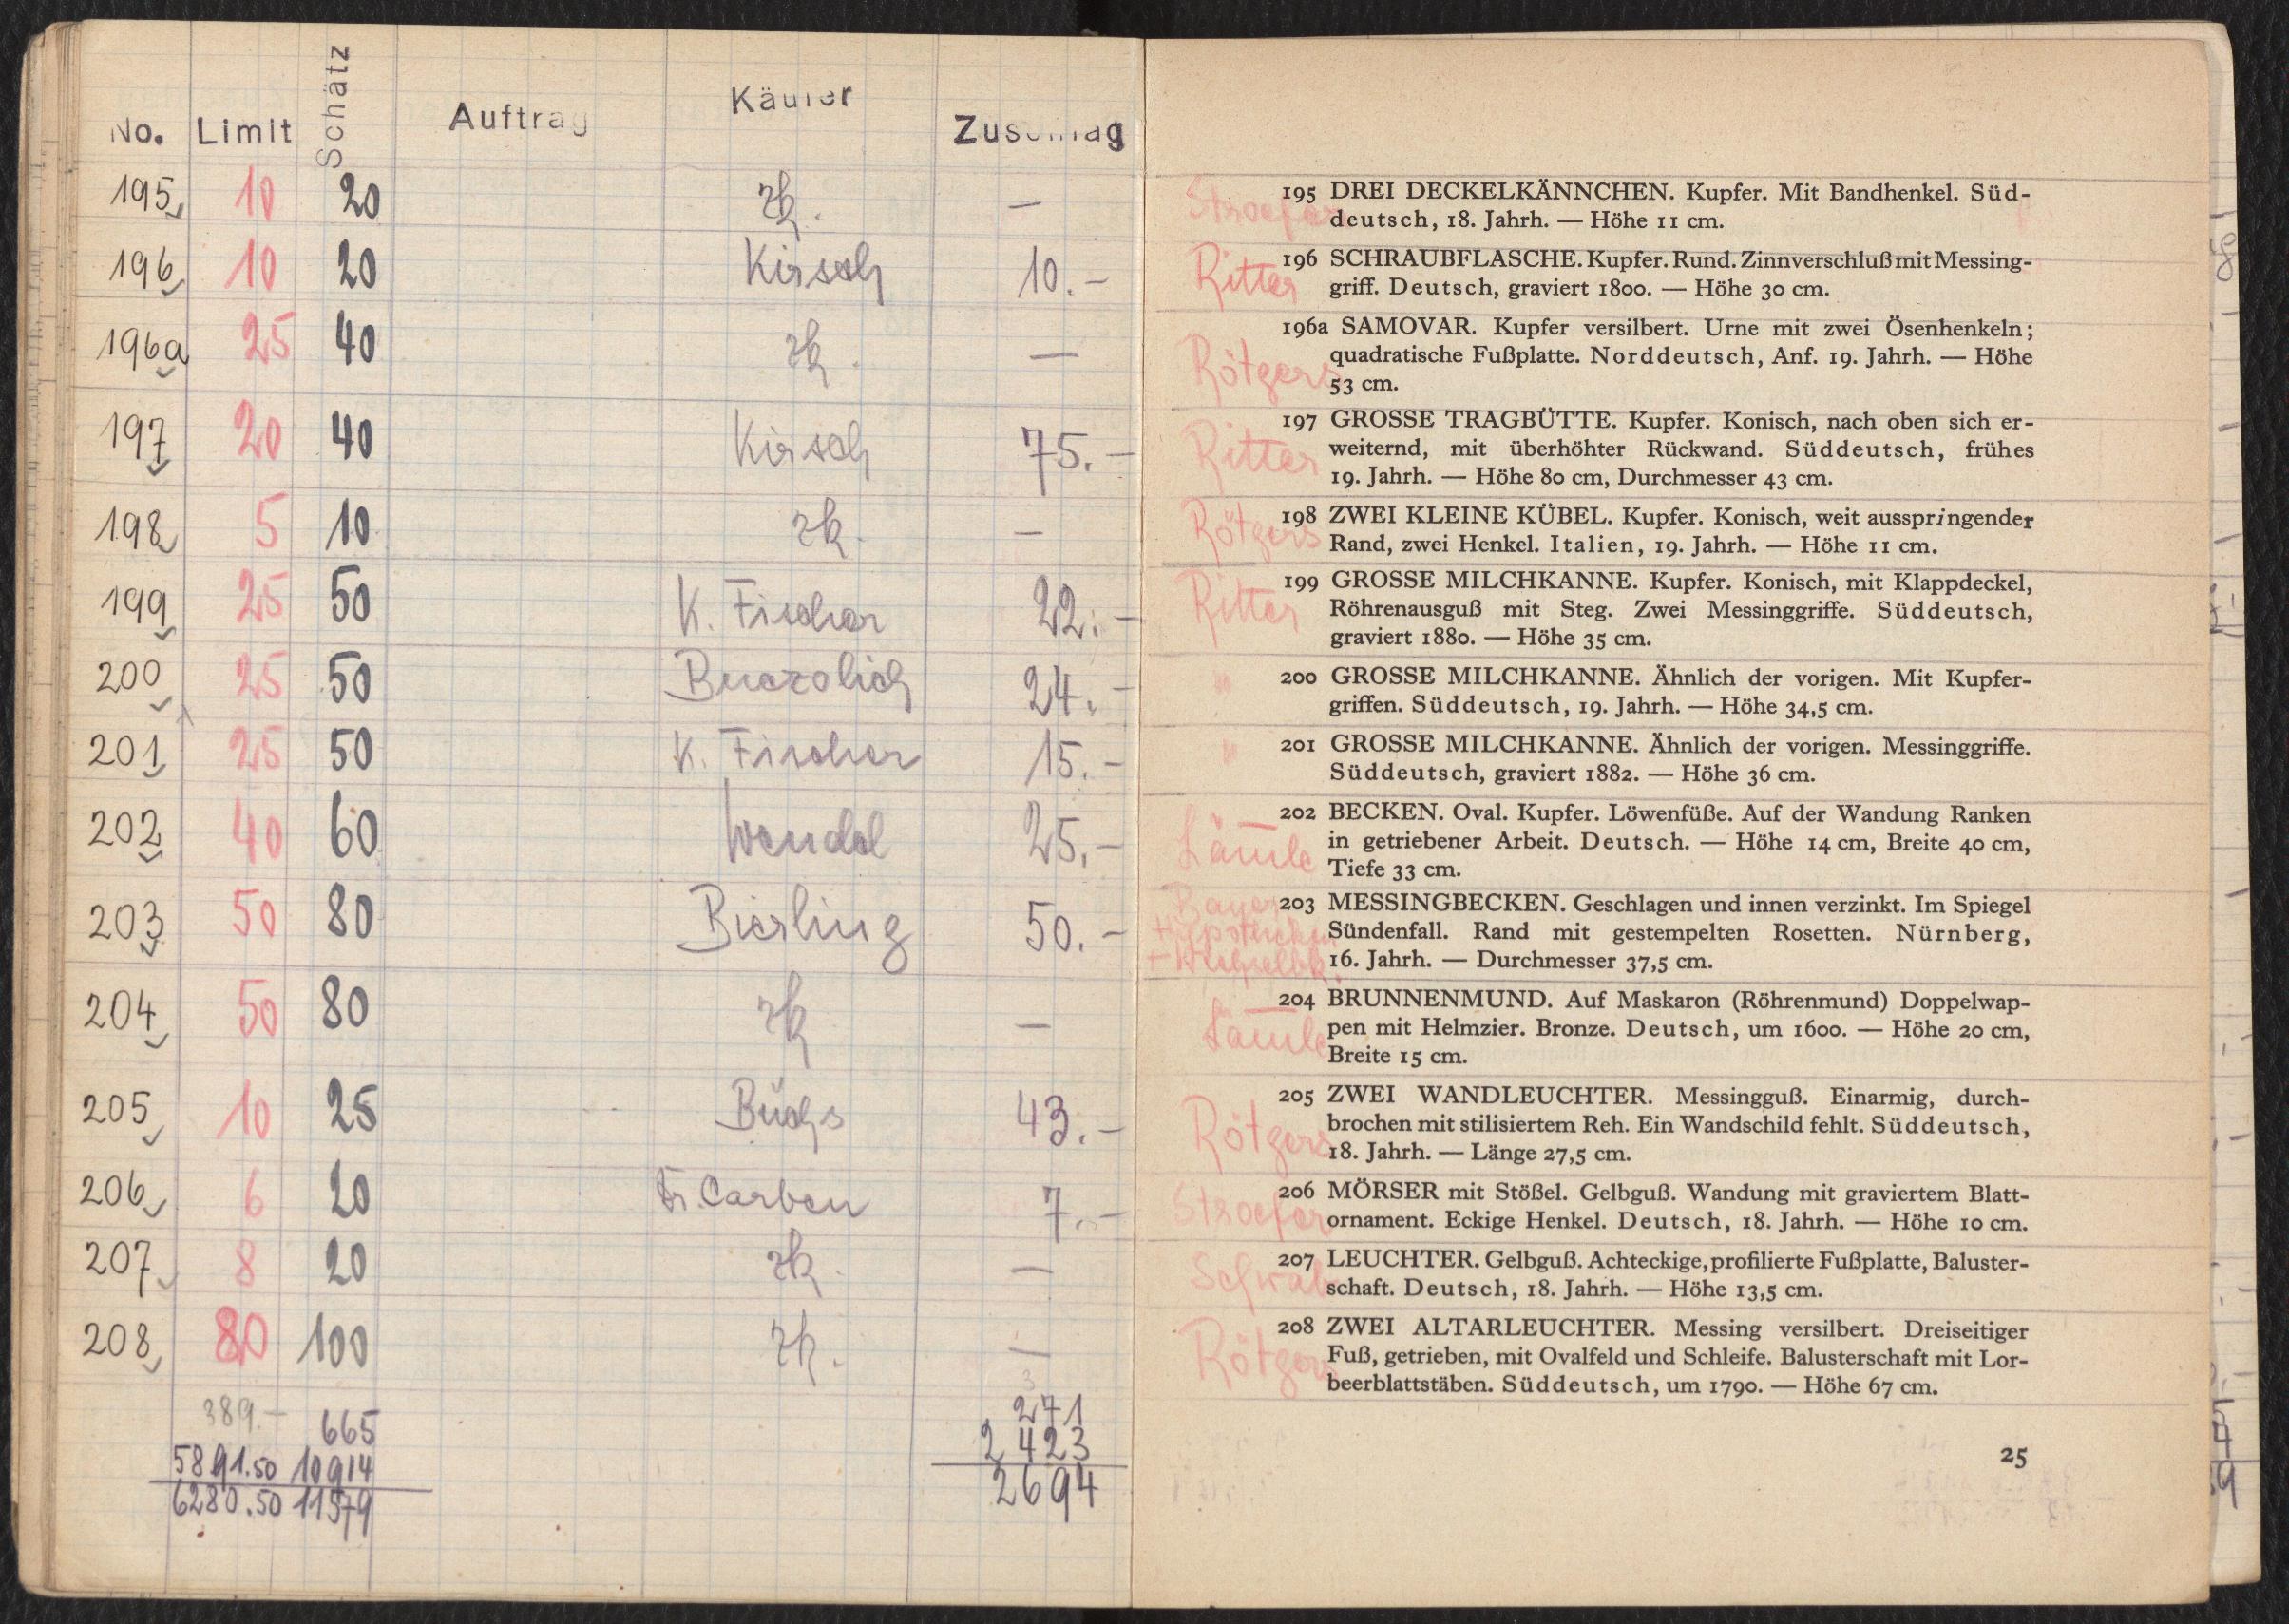 No. Limit Schätz Auftrag Käufer Zuschlag
195 10 20 rk. —
196 10 20 Kirsch 10.-
196a 25 40 rk. —
197 20 40 Kirsch 75.-
198 5 10 rk. —
199 25 50 K. Fischer 22.-
200 25 50 Buczolich 24.-
201 25 50 K. Fischer 15.-
202 40 60 Wendel 25.-
203 50 80 Bierling 50.-
204 50 80 rk —
205 10 25 Büchs 43.-
206 6 20 Fr. Carben 7.-
207 8 20 rk. —
208 80 100 rk. —
389.- 665 271
5891.50 10914 2423
6280.50 11579 2694
Stroefer
195 DREI DECKELKÄNNCHEN. Kupfer. Mit Bandhenkel. Süd-
deutsch, 18. Jahrh. — Höhe 11 cm.
Ritter
196 SCHRAUBFLASCHE. Kupfer. Rund. Zinnverschluß mit Messing-
griff. Deutsch, graviert 1800. — Höhe 30 cm.
Rötgers
196a SAMOVAR. Kupfer versilbert. Urne mit zwei Ösenhenkeln;
quadratische Fußplatte. Norddeutsch, Anf. 19. Jahrh. — Höhe
53 cm.
Ritter
197 GROSSE TRAGBÜTTE. Kupfer. Konisch, nach oben sich er-
weiternd, mit überhöhter Rückwand. Süddeutsch, frühes
19. Jahrh. — Höhe 80 cm, Durchmesser 43 cm.
Rötgers
198 ZWEI KLEINE KÜBEL. Kupfer. Konisch, weit ausspringender
Rand, zwei Henkel. Italien, 19. Jahrh. — Höhe 11 cm.
Ritter
199 GROSSE MILCHKANNE. Kupfer. Konisch, mit Klappdeckel,
Röhrenausguß mit Steg. Zwei Messinggriffe. Süddeutsch,
graviert 1880. — Höhe 35 cm.
"
200 GROSSE MILCHKANNE. Ähnlich der vorigen. Mit Kupfer-
griffen. Süddeutsch, 19. Jahrh. — Höhe 34,5 cm.
"
201 GROSSE MILCHKANNE. Ähnlich der vorigen. Messinggriffe.
Süddeutsch, graviert 1882. — Höhe 36 cm.
Lämle
202 BECKEN. Oval. Kupfer. Löwenfüße. Auf der Wandung Ranken
in getriebener Arbeit. Deutsch. — Höhe 14 cm, Breite 40 cm,
Tiefe 33 cm.
Bayer.
Hypotheken
203 MESSINGBECKEN. Geschlagen und innen verzinkt. Im Spiegel
Sündenfall. Rand mit gestempelten Rosetten. Nürnberg,
16. Jahrh. — Durchmesser 37,5 cm.
Lämle
204 BRUNNENMUND. Auf Maskaron (Röhrenmund) Doppelwap-
pen mit Helmzier. Bronze. Deutsch, um 1600. — Höhe 20 cm,
Breite 15 cm.
Rötgers
205 ZWEI WANDLEUCHTER. Messingguß. Einarmig, durch-
brochen mit stilisiertem Reh. Ein Wandschild fehlt. Süddeutsch,
18. Jahrh. — Länge 27,5 cm.
Stroefer
206 MÖRSER mit Stößel. Gelbguß. Wandung mit graviertem Blatt-
ornament. Eckige Henkel. Deutsch, 18. Jahrh. — Höhe 10 cm.
Schwab
207 LEUCHTER. Gelbguß. Achteckige, profilierte Fußplatte, Baluster-
schaft. Deutsch, 18. Jahrh. — Höhe 13,5 cm.
Rötgers
208 ZWEI ALTARLEUCHTER. Messing versilbert. Dreiseitiger
Fuß, getrieben, mit Ovalfeld und Schleife. Balusterschaft mit Lor-
beerblattstäben. Süddeutsch, um 1790. — Höhe 67 cm.
25